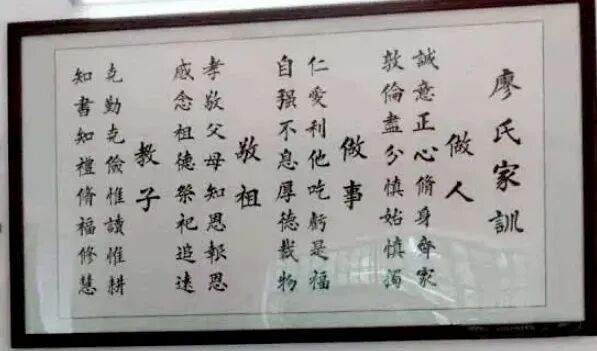 廖氏家訓
做人
誠意正心脩身齊家
敦倫盡分慎始慎獨
做事
仁愛利他吃虧是福
自强不息厚德載物
敬祖
孝敬父母知恩報恩
感念祖德祭祀追遠
教子
克勤克儉惟讀惟耕
知書知禮脩福修慧